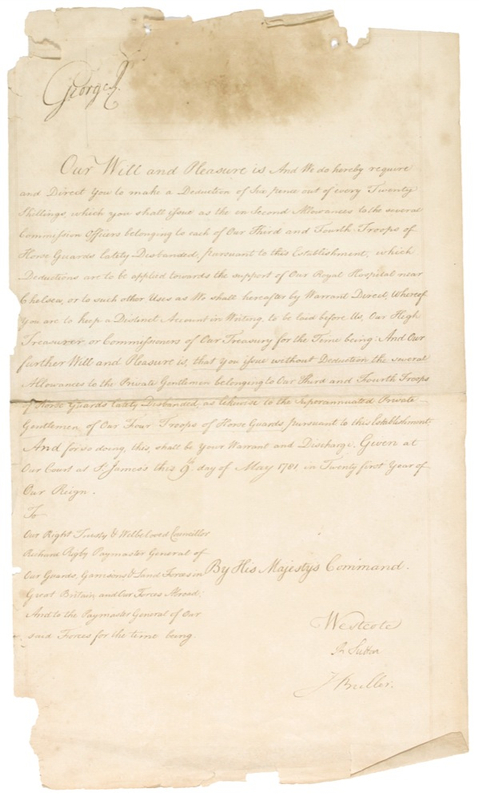 George R.
Our Will and Pleasure is And We do hereby require
and Direct You to make a Deduction of Six pence out of every Twenty
Shillings, which you shall issue as the on Second Allowances to the several
Commission Officers belonging to each of Our Third and Fourth Troops of
Horse Guards lately Disbanded, pursuant to this Establishment, which
Deductions are to be applied towards the support of Our Royal Hospital near
Chelsea, or to such other Uses as We shall hereafter by Warrant Direct, Whereof
You are to keep a Distinct Account in Writing, to be laid before Us, Our High
Treasurer, or Commissioners of Our Treasury for the Time being: And Our
further Will and Pleasure is, that You issue without Deduction the several
Allowances to the Private Gentlemen belonging to Our Third and Fourth Troops
of Horse Guards lately Disbanded, as likewise to the Superannuated Private
Gentlemen of Our Four Troops of Horse Guards, pursuant to this Establishment
And for so doing, this, shall be Your Warrant and Discharge. Given at
Our Court at St. James's this 9th day of May 1781 in Twenty first Year of
Our Reign.
To
Our Right Trusty & Welbeloved Councillor
Richard Rigby Paymaster General of
Our Guards, Garrisons & Land Forces in
Great Britain, and Forces Abroad
And to the Paymaster General of Our
said Forces for the time being
By His Majestys Command.
Westcote
Sutton
J Buller.